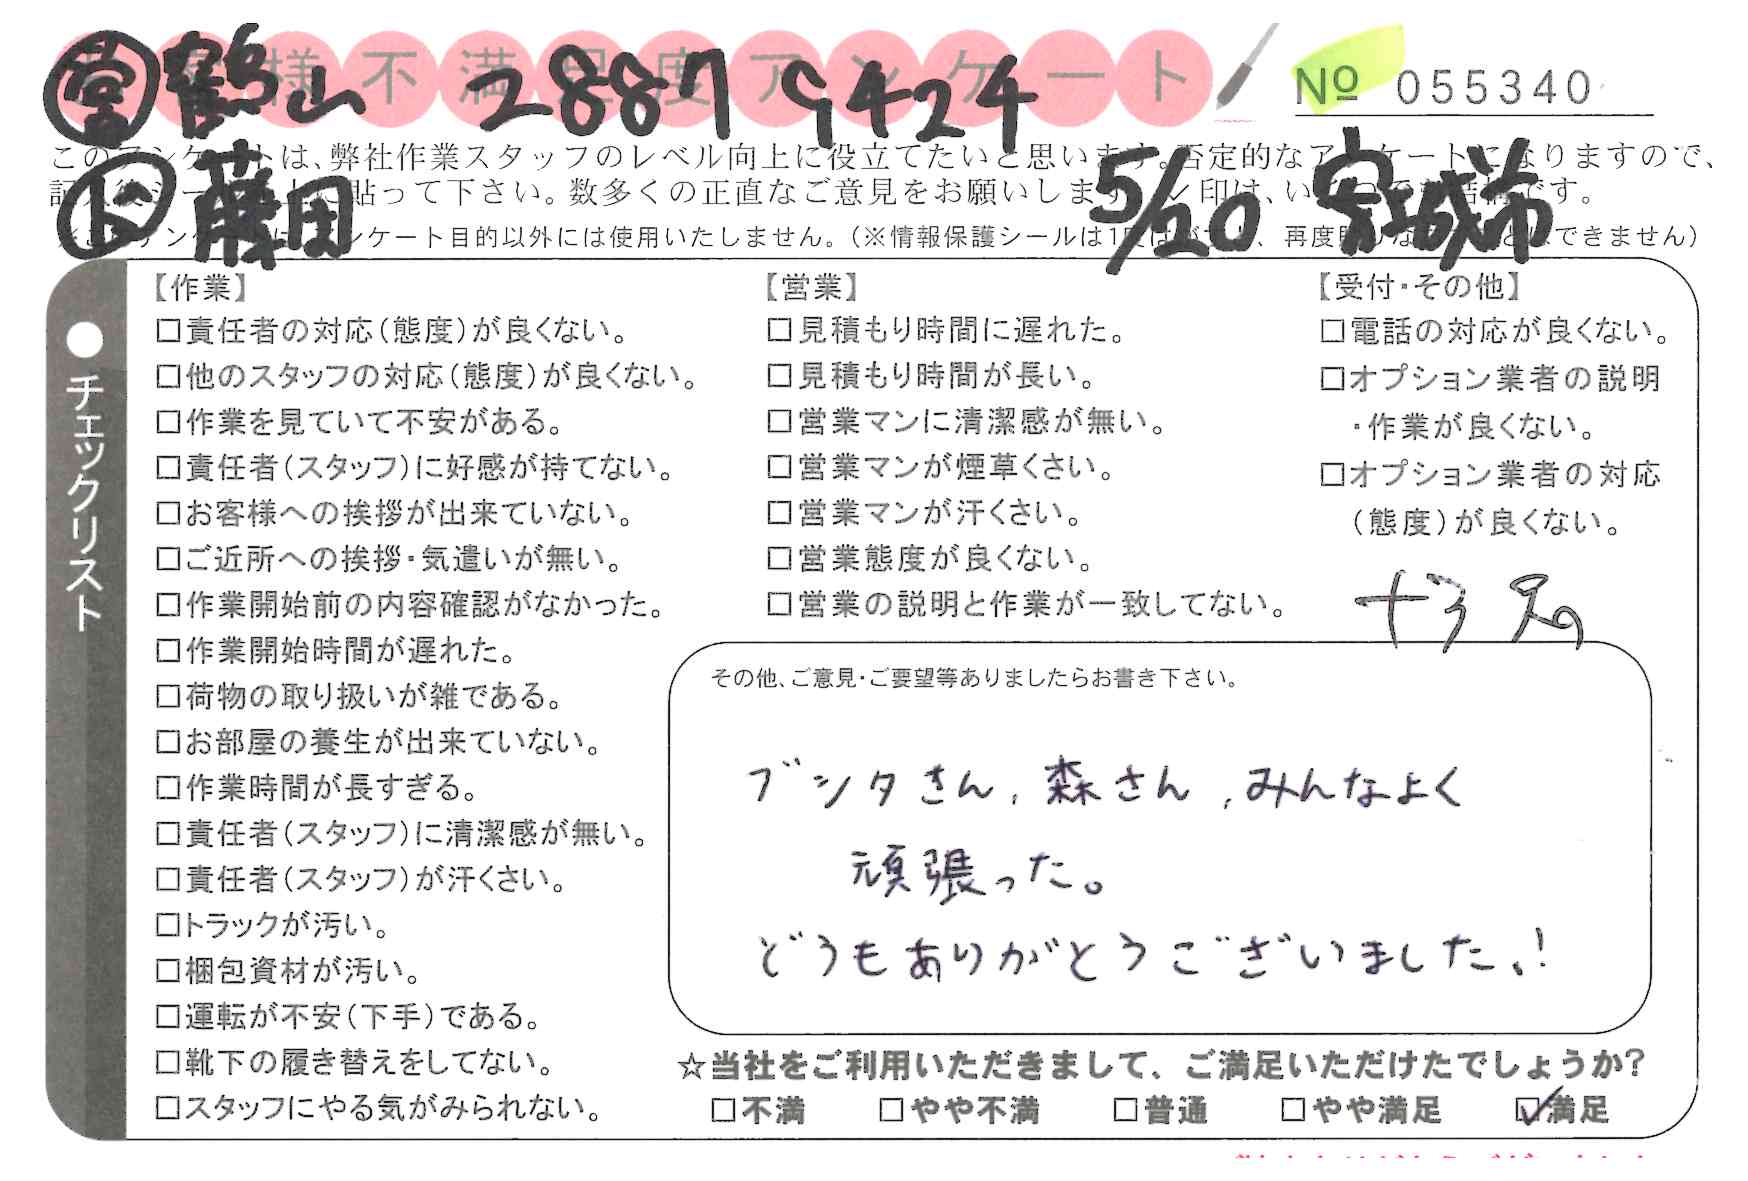 お客様不満足度アンケート
No 055340
㊂鶴山 2887 9424
このアンケートは、弊社作業スタッフのレベル向上に役立てたいと思います。否定的なアンケートになりますので、
記入後シールを上に貼って下さい。数多くの正直なご意見をお願いします。
藤田 5/20
アンケート目的以外には使用いたしません。(※情報保護シールは1度はがすと、再度貼りなおすことはできません)
●チェックリスト
【作業】
□責任者の対応(態度)が良くない。
□他のスタッフの対応(態度)が良くない。
□作業を見ていて不安がある。
□責任者(スタッフ)に好感が持てない。
□お客様への挨拶が出来ていない。
□ご近所への挨拶・気遣いが無い。
□作業開始前の内容確認がなかった。
□作業開始時間が遅れた。
□荷物の取り扱いが雑である。
□お部屋の養生が出来ていない。
□作業時間が長すぎる。
□責任者(スタッフ)に清潔感が無い。
□責任者(スタッフ)が汗くさい。
□トラックが汚い。
□梱包資材が汚い。
□運転が不安(下手)である。
□靴下の履き替えをしてない。
□スタッフにやる気がみられない。
【営業】
□見積もり時間に遅れた。
□見積もり時間が長い。
□営業マンに清潔感が無い。
□営業マンが煙草くさい。
□営業マンが汗くさい。
□営業態度が良くない。
□営業の説明と作業が一致してない。
【受付・その他】
□電話の対応が良くない。
□オプション業者の説明
・作業が良くない。
□オプション業者の対応
(態度)が良くない。
その他、ご意見・ご要望等ありましたらお書き下さい。
ブンタさん,森さん,みんなよく
頑張った。
どうもありがとうございました。!
☆当社をご利用いただきまして、ご満足いただけたでしょうか?
□不満 □やや不満 □普通 □やや満足 ☑満足